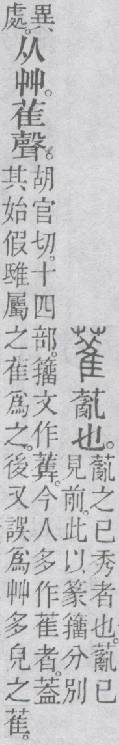 萑
薍也。
薍之已秀者也。薍已
見前。此以篆籒分別
異
處。
从艸。萑聲。
胡官切。十四部。籒文作。今人多作萑者。蓋
其始假雖屬之萑爲之。後又誤爲艸多皃之萑。